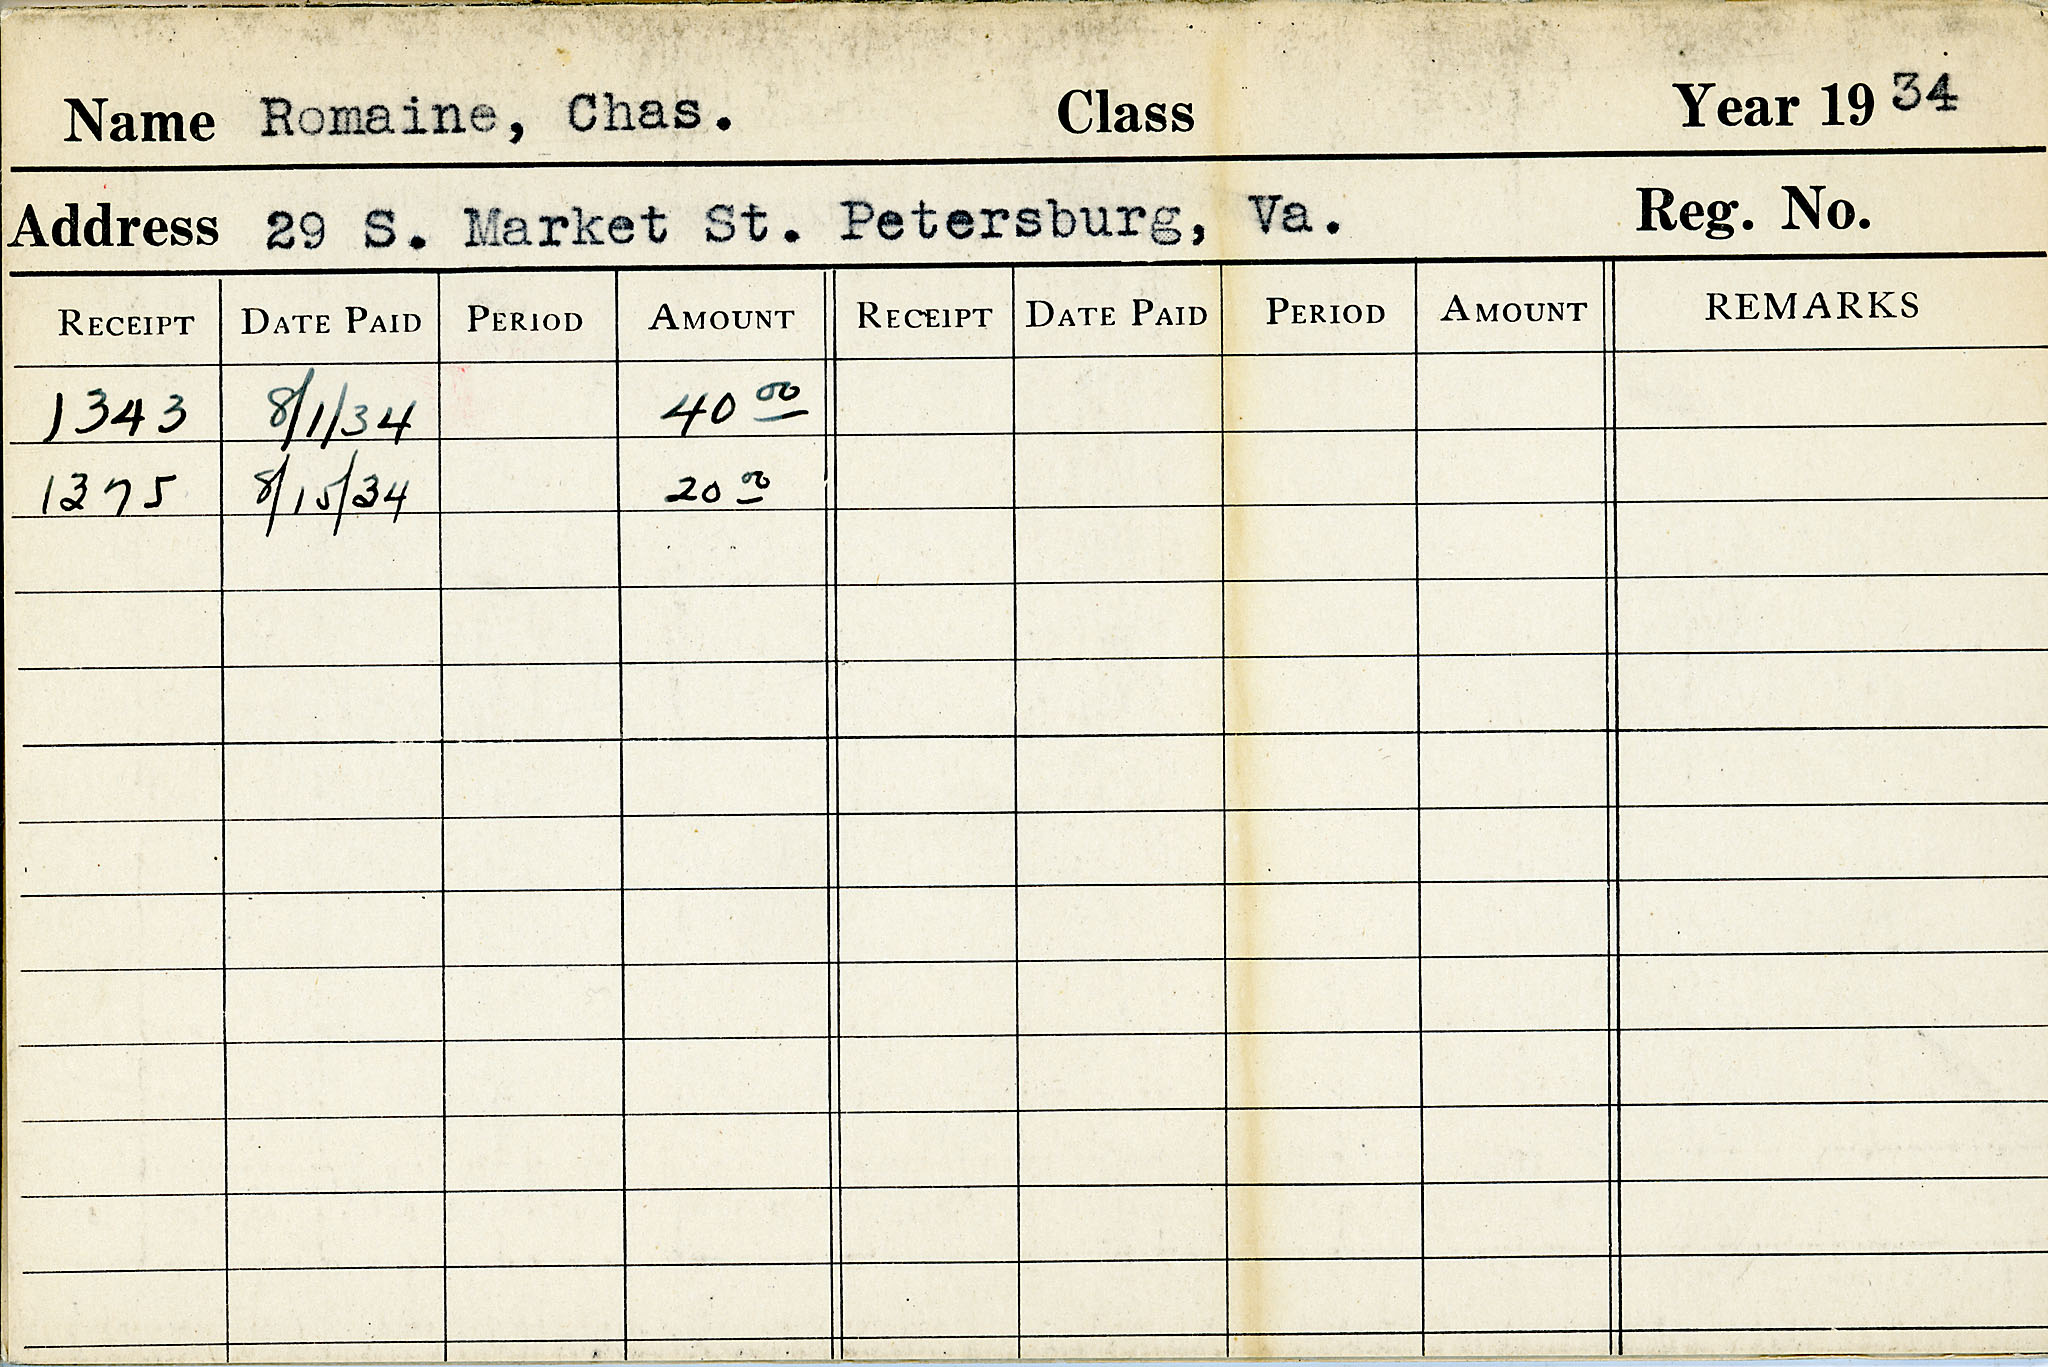 Name Romaine, Chas. Class Year 19 34
Address 29 S. Market St. Petersburg, Va. Reg. No.
RECEIPT DATE PAID PERIOD AMOUNT RECEIPT DATE PAID PERIOD AMOUNT REMARKS
1343 8/1/34 40 00
1375 8/15/34 20 00